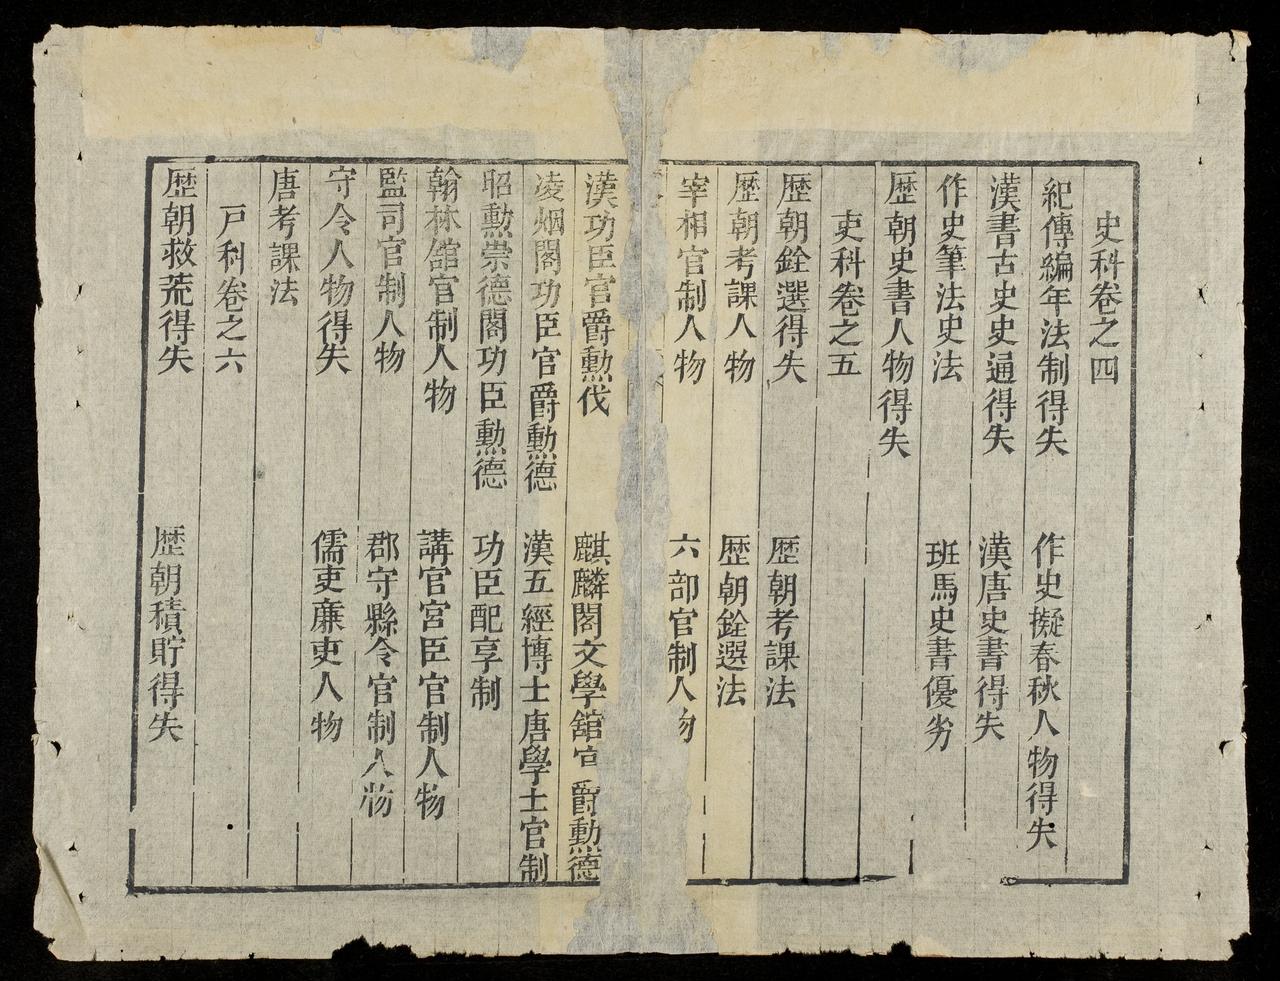 史科卷之四
紀傳編年法制得失　作史擬春秋人物得失
漢書古史史通得失　漢唐史書得失
作史筆法史法　班馬史書優劣
歷朝史書人物得失
吏科卷之五
歷朝銓選得失　歷朝考課法
歷朝考課人物　歷朝銓選法
宰相官制人物　六部官制人物
漢功臣官爵勲伐　麒麟閣文學舘官爵勲德
凌烟閣功臣官爵勲德　漢五經博士唐學士官制
昭勲崇德閣功臣勲德　功臣配享制
翰林舘官制人物　講官宮臣官制人物
監司官制人物　郡守縣令官制人物
守令人物得失　儒吏亷吏人物
唐考課法
戸科卷之六
歷朝救荒得失　歷朝積貯得失